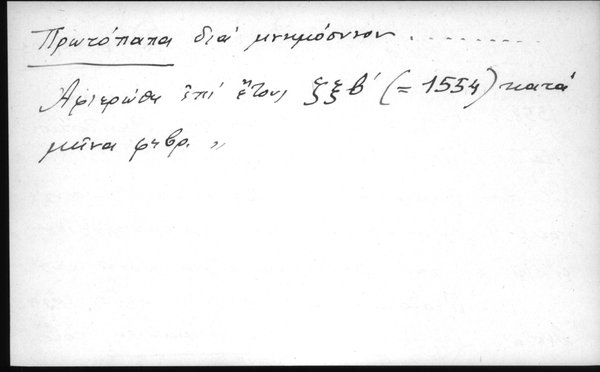 Πρωτόπαπα διά μνημόσυνον . . . . . . . . . .
Αφιερώθη ἐπί ἔτους ζξβ΄ (= 1554) κατά
μῆνα φεβρ. „